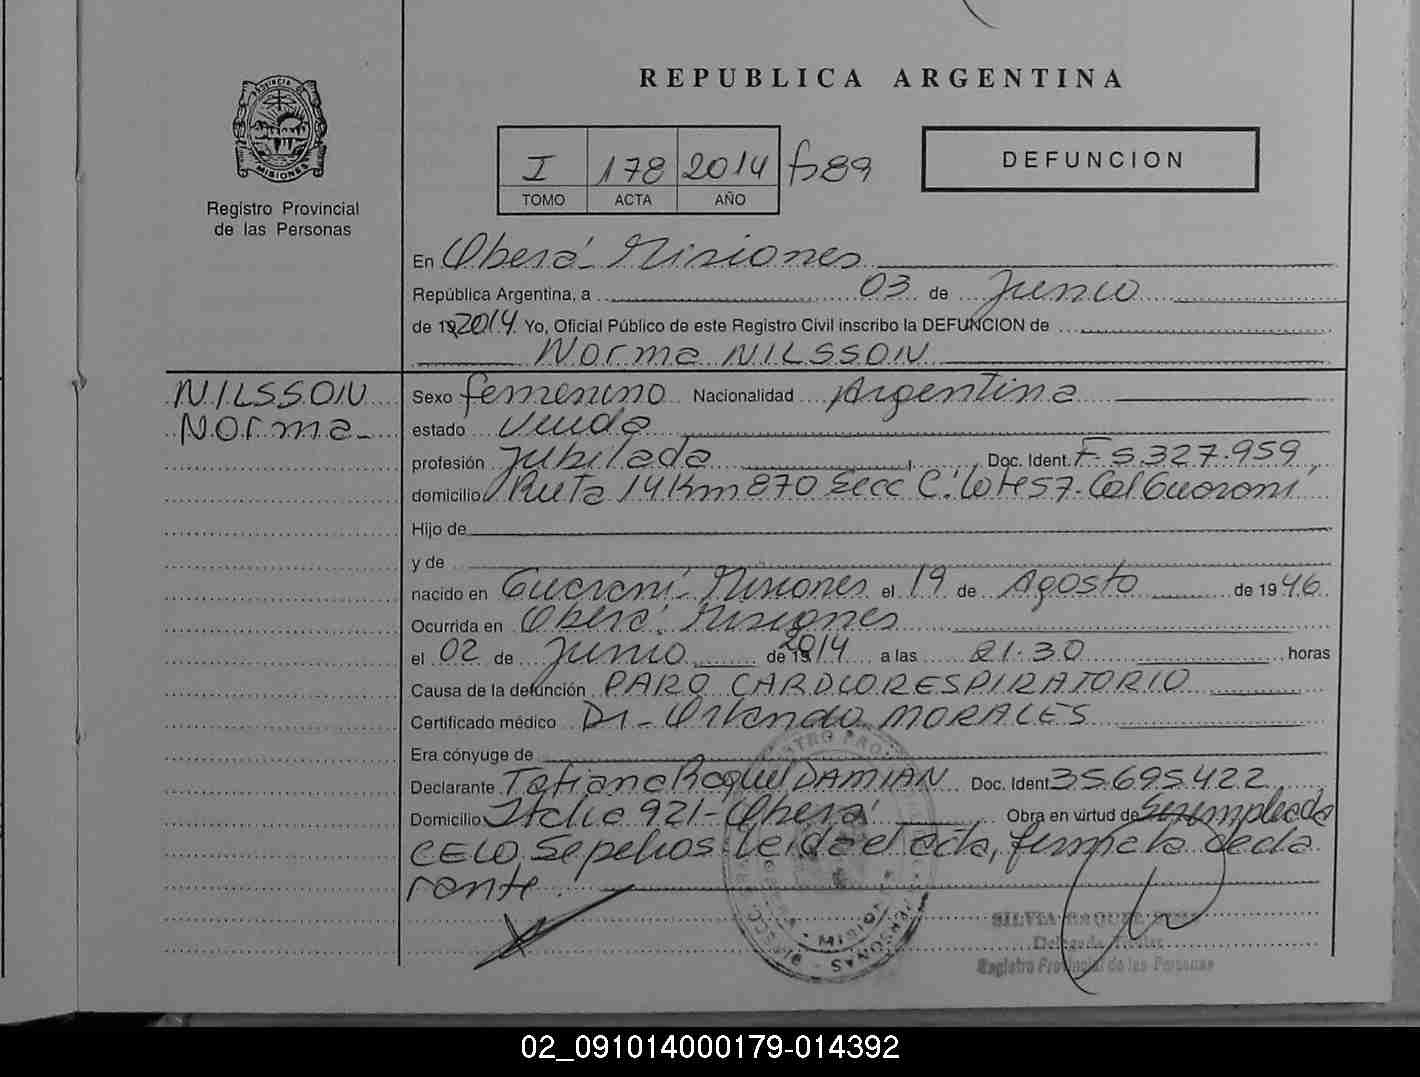 REPUBLICA ARGENTINA
PROVINCIA DE
MISIONES
Registro Provincial
de las Personas
I 178 2014 fº89
TOMO ACTA AÑO
DEFUNCION
En Oberá - Misiones
República Argentina, a 03 de Junio
de 19 2014 Yo, Oficial Público de este Registro Civil inscribo la DEFUNCION de
Norma NILSSON
NILSSON
Norma-
Sexo femenino Nacionalidad Argentina
estado viuda
profesión Jubilada, Doc. Ident. F-5.327.959
domicilio Ruta 14 Km 870 Secc C. Lote 57. Cal Guaraní
Hijo de
y de
nacido en Guaraní - Misiones el 19 de Agosto de 1946
Ocurrida en Oberá. Misiones
el 02 de Junio de 19 2014 a las 21.30 horas
Causa de la defunción PARO CARDIORESPIRATORIO
Certificado médico Dr - Orlando MORALES
Era cónyuge de
Declarante Tatiana Raquel DAMIAN Doc. Ident 35695422
Domicilio Italia 921 - Oberá Obra en virtud de Ser empleada
CELO Sepelios. Leida el acta, firma la decla
rante
SILVIA RAQUEL
Delegada Titular
Registro Provincial de las Personas
02_091014000179-014392